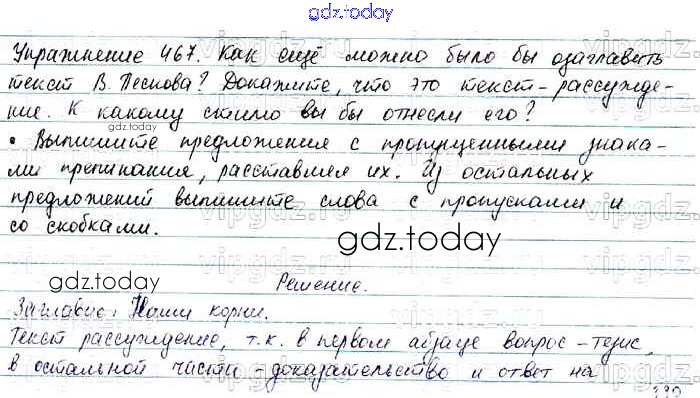 gdz.today
Упражнение 467. Как ещё можно было бы озаглавить
текст В. Пескова? Докажите, что это текст-рассужде-
ние. К какому стилю вы бы отнесли его?
gdz.today
• Выпишите предложения с пропущенными знака-
ми препинания, расставляя их. Из остальных
предложений выпишите слова с пропусками и
со скобками.
gdz.today
gdz.today
Решение.
Заглавие: Наши корни.
Текст рассуждение, т.к. в первом абзаце вопрос - тезис,
в остальной части - доказательство и ответ на